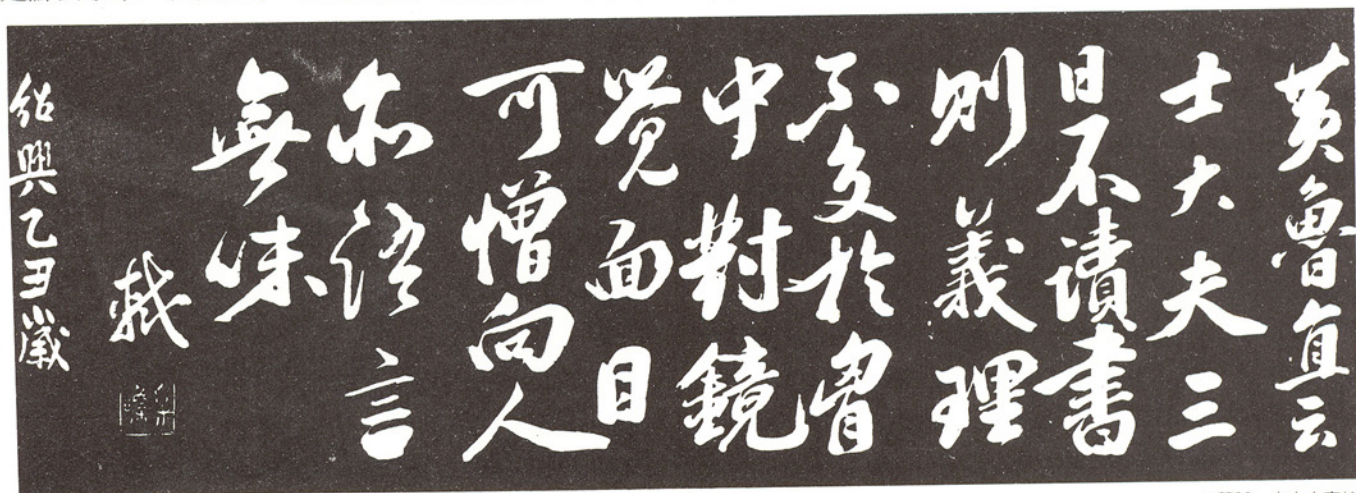 黄魯直云
士大夫三
日不讀書
則義理
不交於胷
中對鏡
覺面目
可憎向人
亦語言
無味
軾
紹興乙丑歲